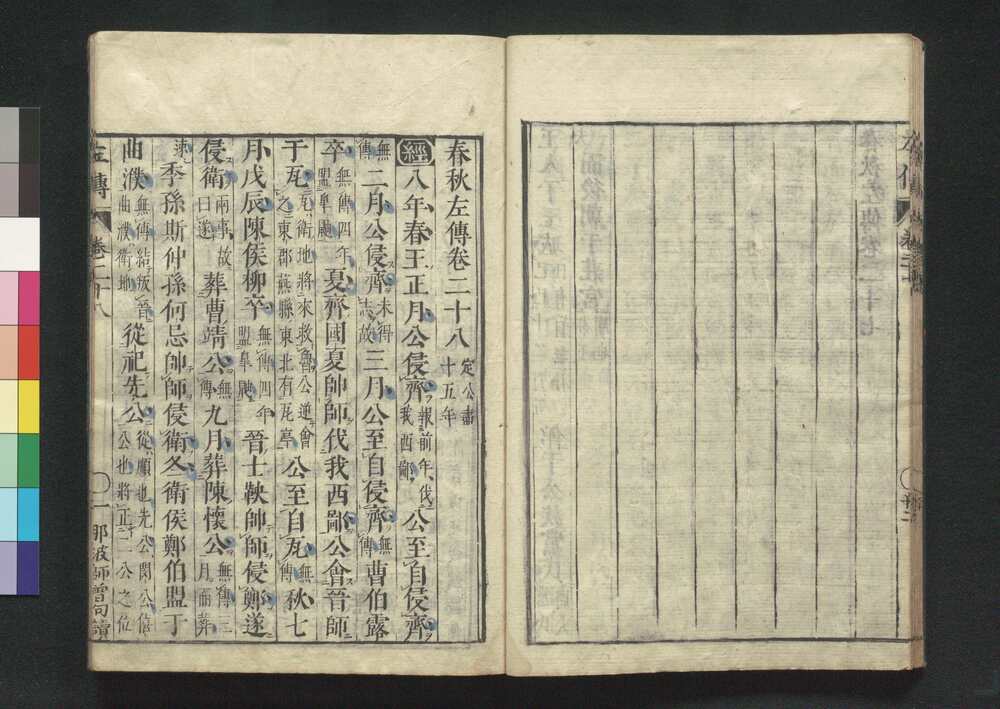 春秋左傳卷二十八 定公盡十五年
經八年春王正月公侵齊 報前年伐我西鄙 公至自侵齊
無傳 二月公侵齊 未得志故 三月公至自侵齊 無傳 曹伯露
卒 無傳四年盟皐鼬 夏齊國夏帥師伐我西鄙公會晉師
于瓦 瓦衛地將來救魯公逆會之東郡燕縣東北有瓦亭 公至自瓦 無傳 秋七
月戊辰陳侯柳卒 無傳四年盟皐鼬 晉士鞅帥師侵鄭遂
侵衛 兩事故曰遂 葬曹靖公 無傳 九月葬陳懷公 無傳三月而葬
速 季孫斯仲孫何忌帥師侵衛冬衛侯鄭伯盟于
曲濮 無傳結叛晉曲濮衛地 從祀先公 從順也先公閔公僖公也將正二公之位
左傳 卷二十八 一 那波師曾句讀